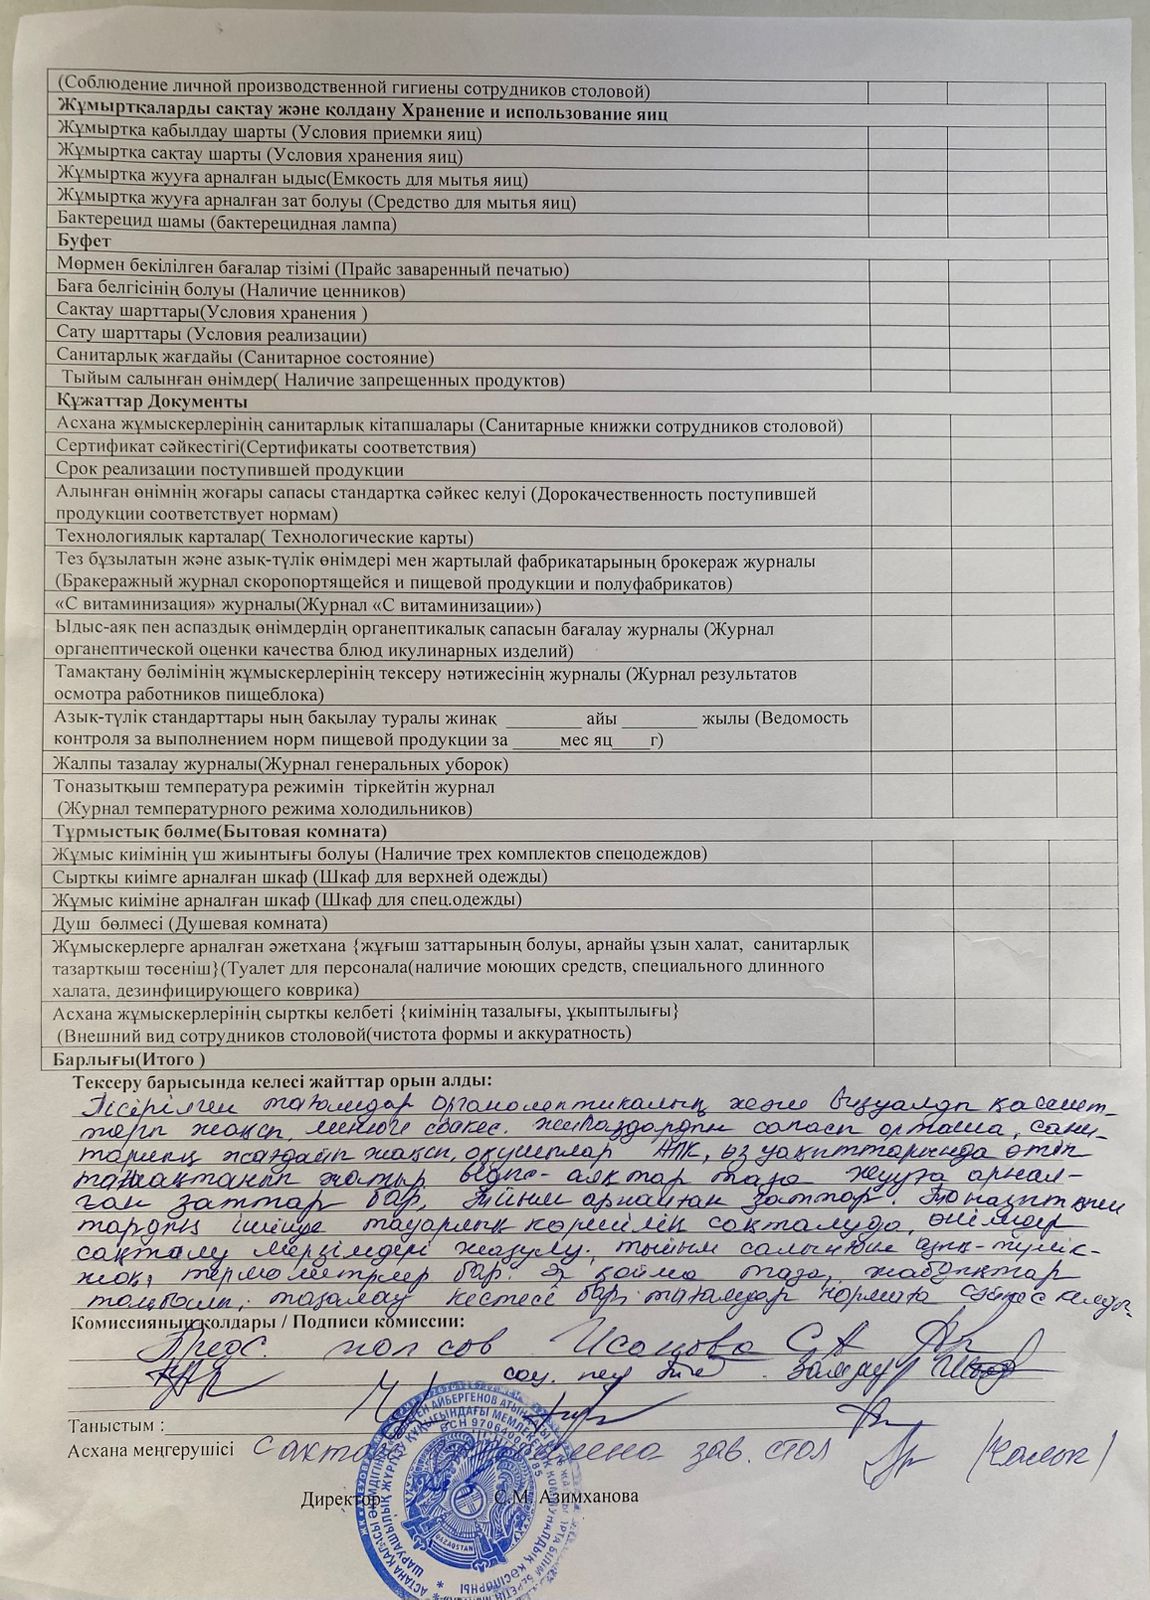 (Соблюдение личной производственной гигиены сотрудников столовой)
Жұмыртқаларды сақтау және қолдану Хранение и использование яиц
Жұмыртқа қабылдау шарты (Условия приемки яиц)
Жұмыртқа сақтау шарты (Условия хранения яиц)
Жұмыртқа жууға арналған ыдыс(Емкость для мытья яиц)
Жұмыртқа жууға арналған зат болуы (Средство для мытья яиц)
Бактерецид шамы (бактерецидная лампа)
Буфет
Мөрмен бекілілген бағалар тізімі (Прайс заваренный печатью)
Баға белгісінің болуы (Наличие ценников)
Сақтау шарттары(Условия хранения )
Сату шарттары (Условия реализации)
Санитарлық жағдайы (Санитарное состояние)
Тыйым салынған өнімдер( Наличие запрещенных продуктов)
Құжаттар Документы
Асхана жұмыскерлерінің санитарлық кітапшалары (Санитарные книжки сотрудников столовой)
Сертификат сәйкестігі(Сертификаты соответствия)
Срок реализации поступившей продукции
Алынған өнімнің жоғары сапасы стандартқа сәйкес келуі (Дорокачественность поступившей
продукции соответствует нормам)
Технологиялық карталар( Технологические карты)
Тез бұзылатын және азық-түлік өнімдері мен жартылай фабрикатарының брокераж журналы
(Бракеражный журнал скоропортящейся и пищевой продукции и полуфабрикатов)
«С витаминизация» журналы(Журнал «С витаминизации»)
Ыдыс-аяқ пен аспаздық өнімдердің органептикалық сапасын бағалау журналы (Журнал
органептической оценки качества блюд икулинарных изделий)
Тамақтану бөлімінің жұмыскерлерінің тексеру нәтижесінің журналы (Журнал результатов
осмотра работников пищеблока)
Азық-түлік стандарттары ның бақылау туралы жинақ ________ айы ________ жылы (Ведомость
контроля за выполнением норм пищевой продукции за _____мес яц____г)
Жалпы тазалау журналы(Журнал генеральных уборок)
Тоназытқыш температура режимін тіркейтін журнал
(Журнал температурного режима холодильников)
Тұрмыстық бөлме(Бытовая комната)
Жұмыс киімінің үш жиынтығы болуы (Наличие трех комплектов спецодеждов)
Сыртқы киімге арналған шкаф (Шкаф для верхней одежды)
Жұмыс киіміне арналған шкаф (Шкаф для спец.одежды)
Душ бөлмесі (Душевая комната)
Жұмыскерлерге арналған әжетхана {жұғыш заттарының болуы, арнайы ұзын халат, санитарлық
тазартқыш төсеніш}(Туалет для персонала(наличие моющих средств, специального длинного
халата, дезинфицирующего коврика)
Асхана жұмыскерлерінің сыртқы келбеті {киімінің тазалығы, ұқыптылығы}
(Внешний вид сотрудников столовой(чистота формы и аккуратность)
Барлығы(Итого )
Тексеру барысында келесі жайттар орын алды:
Пісірілген тағамдар органолептикалық және визуалды қасиет-
тері жақсы, менюге сәйкес. жиһаздардың сапасы орташа, сани-
тарлық жағдайы жақсы, оқушылар АПК, өз уақыттарында өтіп
тамақтанып жатыр ыдыс-аяқтар таза жууға арнал-
ған заттар бар,
тардың ішінде тауарлық көршілік сақталуда, өнімдер
сақталу мерзімдері жазулы, тыйым салынған азық-түлік-
жоқ, термометрлер бар. қойма таза, жабдықтар
тазалау кестесі бар, тағамдар нормаға сәйкес
Комиссияның қолдары / Подписи комиссии:
Предс. поп сов С А
соц. пед
Таныстым :
Асхана меңгерушісі зав. стол
Директор С.М. Азимханова
QAZAQSTAN